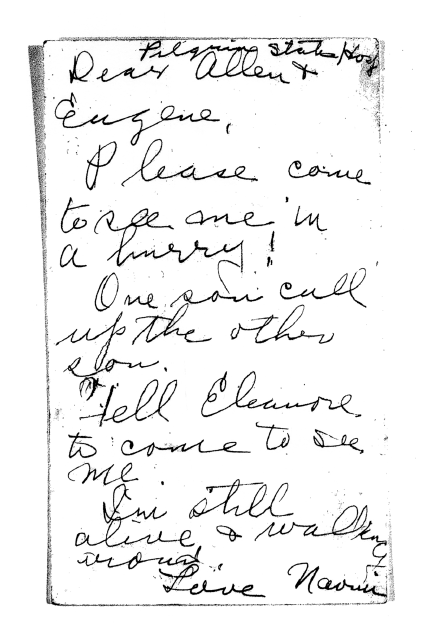 Pilgrim State Hos
Dear Allen &
Eugene,
Please come
to see me in
a hurry!
One son call
up the other
son.
Tell Eleanore
to come to see
me.
I'm still
alive & walking
around.
Love Naomi